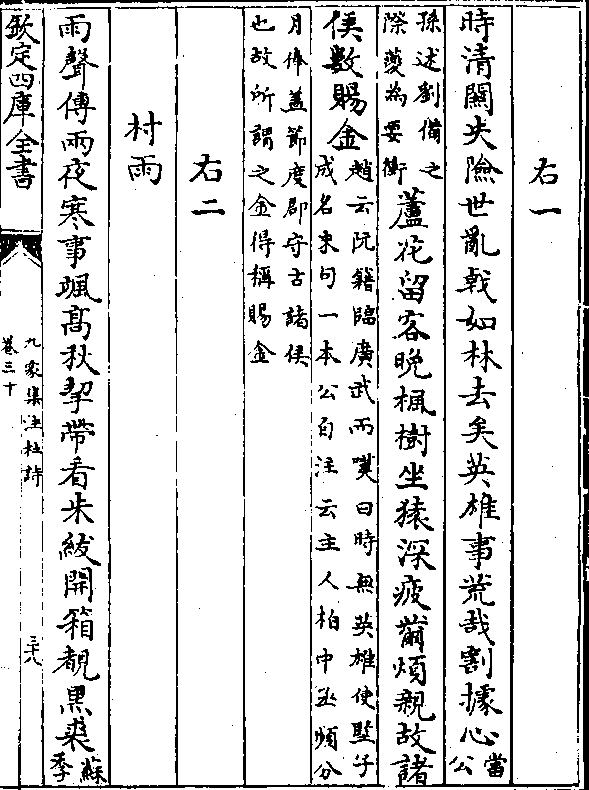 右一
時清關失險世亂戟如林去矣英雄事荒哉割據心當
公
孫述劉備之
際夔為要衝
蘆花留客晚楓樹坐猿深疲苶煩親故諸
侯數賜金趙云阮籍臨廣武而嘆曰時無英雄使豎子
成名末句一本公自注云主人柏中丞頻分
月俸蓋節度郡守古諸侯
也故所謂之金得稱賜金
右二
村雨
雨聲傳兩夜寒事颯高秋挈帶看朱紱開箱覩黑裘蘇
季
欽定四庫全書
九家集注杜詩
卷三十
三十八